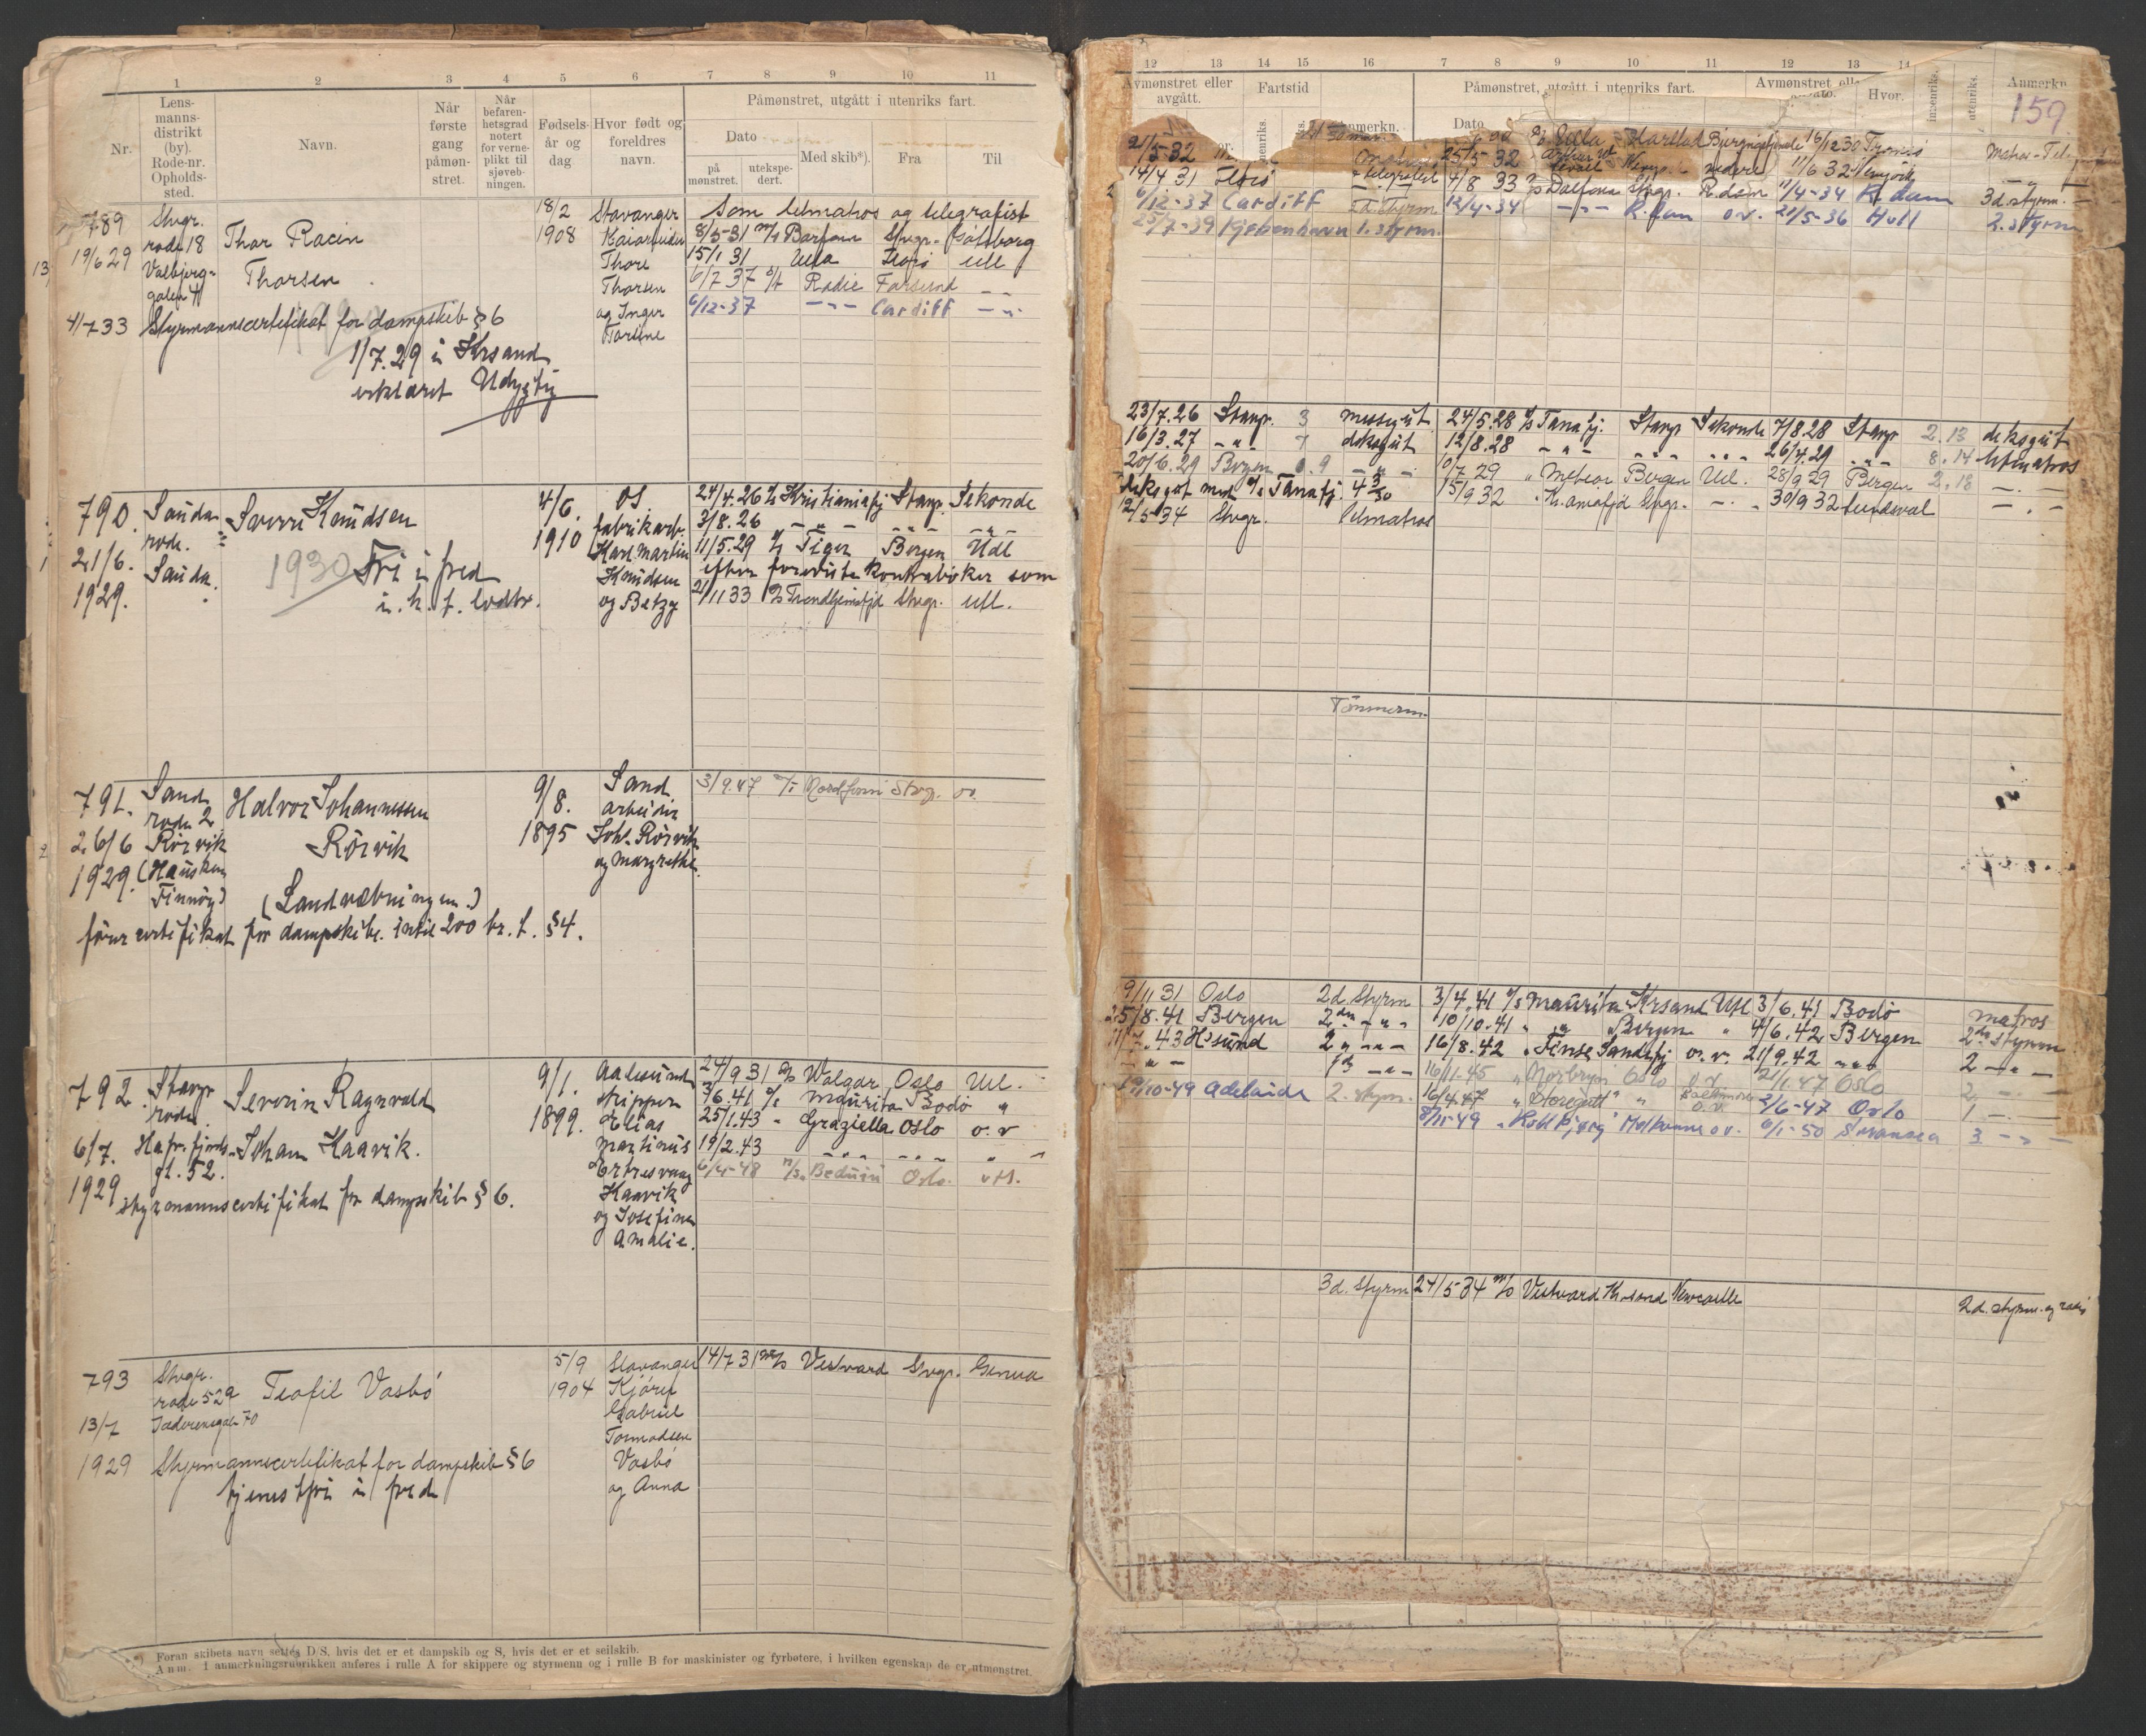 1 2 3 4 5 6 7 8 9 10 11
Nr.
Lens-
manns-
distrikt
(by).
Rode-nr.
Opholds-
sted.
Navn.
Når
første
gang
påmøn-
stret.
Når
befaren-
hetsgrad
notert
for verne-
plikt til
sjøveb-
ningen.
Fødsels-
år og
dag
Hvor født og
foreldres
navn.
Påmønstret, utgått i utenriks fart.
Dato
på
mønstret.
utekspe-
dert.
Med skib*).
Fra
Til
789
19/6 29
Stvgr.
rode 18
Valbjerg-
gaten 4
Thor Racin
Thorsen
18/2
1908
Stavanger
Thore
Thorsen
og Inger
Som letmatros og telegrafist
8/5-31 m/s Barfonn Stvgr. Gøteborg
15/1 31 Ulla Florø Utl
6/7 37 Radie Farsund -"-
6/12-37 -"- Cardiff -"-
4/7 33 Styrmannscertifikat for dampskib § 6
1/7.29 i Krsand
erklæret Udygtig
790.
21/6.
1929.
Sauda
rode.
Sauda.
Sverre Knudsen
1930 Fri i fred
4/6.
1910
OS.
fabrikarb.
Karl Martin
Knudsen
og Betzy
24/4.26 Kristianiafj. Stavgr. Sekonde
3/8.26 -"- -"- -"-
11/5.29 Tiger Bergen Utl
efter foreviste kontrabøker som
2/11 33 Trondhjemsfjd Stvgr. Utl.
791.
26/6
1929.
Sand
rode 2
Rörvik
(Hausken
Finnöy)
Halvor Johannessen
Rörvik
(Landvæbningen.)
9/8.
1895
Sand
arbeider
Joh. Rörvik
og Margrethe
3/9.47 Stvgr. ov.
förer certifikat for dampskibe intil 200 br. t. §4.
792.
6/7.
1929
Stavgr
rode
Hafrsfjords-
gt. 52.
Severin Ragnvald
Johan Kaarik.
9/1.
1899.
Aalesund
skipper
Elias
Martinus
Ertresvaag
Kaarik
og Josefine
Amalie.
24/9 31 Walgar Oslo Utl.
3/6.41 Maurita Bodö "
25/1.43 - Graziella Oslo o.v
19/2.43 -"- -"- "
6/4-48 m/s. Beduin Oslo utl.
styrmannscertifikat for dampskib § 6.
793
13/7
1929
Stvgr.
rode 529
Jæderensgate 70
Teofil Vasbö
5/9
1904
Stavanger
Gabriel
Tormodsen
Vasbö
og Anna
14/7 31 m/s Vestvard Stvgr. Genua
Styrmannscertifikat for dampskib § 6
tjenestfri i fred
*) Foran skibets navn settes D/S, hvis det er et dampskib og S, hvis det er et seilskib.
Anm. I anmerkningsrubrikken anføres i rulle A for skippere og styrmenn og i rulle B for maskinister og fyrbøtere, i hvilken egenskap de er utmønstret.
12 13 14 15 16 7 8 9 10 11 12 13 14
Avmønstret eller
avgått.
Fartstid
Påmønstret, utgått i utenriks fart.
Avmønstret
Hvor.
innenriks.
utenriks.
Anmerkn
Dato
159
21/5-32 25/5 32 11/6 32
14/4 31 Florø telegrafist 4/8 33 Dalfonn Stvgr. R.dam 11/4-34 R.dam 3d. styrm.
6/12-37 Cardiff 12/4-34 -"- o.v. 21/5-36 Hull 2. styrm
25/7-39 Kjøbenhavn 1. styrm.
23/7.26 Stavgr. 3 messegut 24/5.28 Tanafj. Stavgr Sekonde 7/8.28 Stavgr 2.13 deksgut
16/3.27 -"- 7 deksgut 12/8.28 -"- -"- -"- 26/4.29 -"- 8.14 letmatros
20/6.29 Bergen 1.9 -"- 10/7 29 " Meteor Bergen Utl. 28/9 29 Bergen 2.18 -"-
deksgut med Tanafj. 15/9 32 Stvgr. -"- 30/9 32
12/5-34 Stvgr. letmatros
Tömmerm.
19/11 31 Oslo 2d. Styrm 3/4.41 Maurita Krsand Utl 3/6.41 Bodö matros
25/8.41 Bergen 2dn -"- 10/10.41 " " Bergen " 4/6.42 Bergen 2dn Styrm
11/7.43 H'sund 2 " -"- 16/8.42 " Finse Sandefj o.v. 21/9.42 -"- 2 -"-
-"- -"- 16/11.45 " Norbryn Oslo o.v. 2/1.47 Oslo 2 -"-
19/10-49 Adelaide 2. styrm. 16/4.47 " " Baltimore 2/6-47 Oslo 1 -"-
8/11-49 " Kollbjørg Melbourne o.v. 6/1-50 Swansea 3 -"-
3d. Styrm 24/5 34 m/s Vestvard Kr.sand Newcastle 2d. styrm. og radio